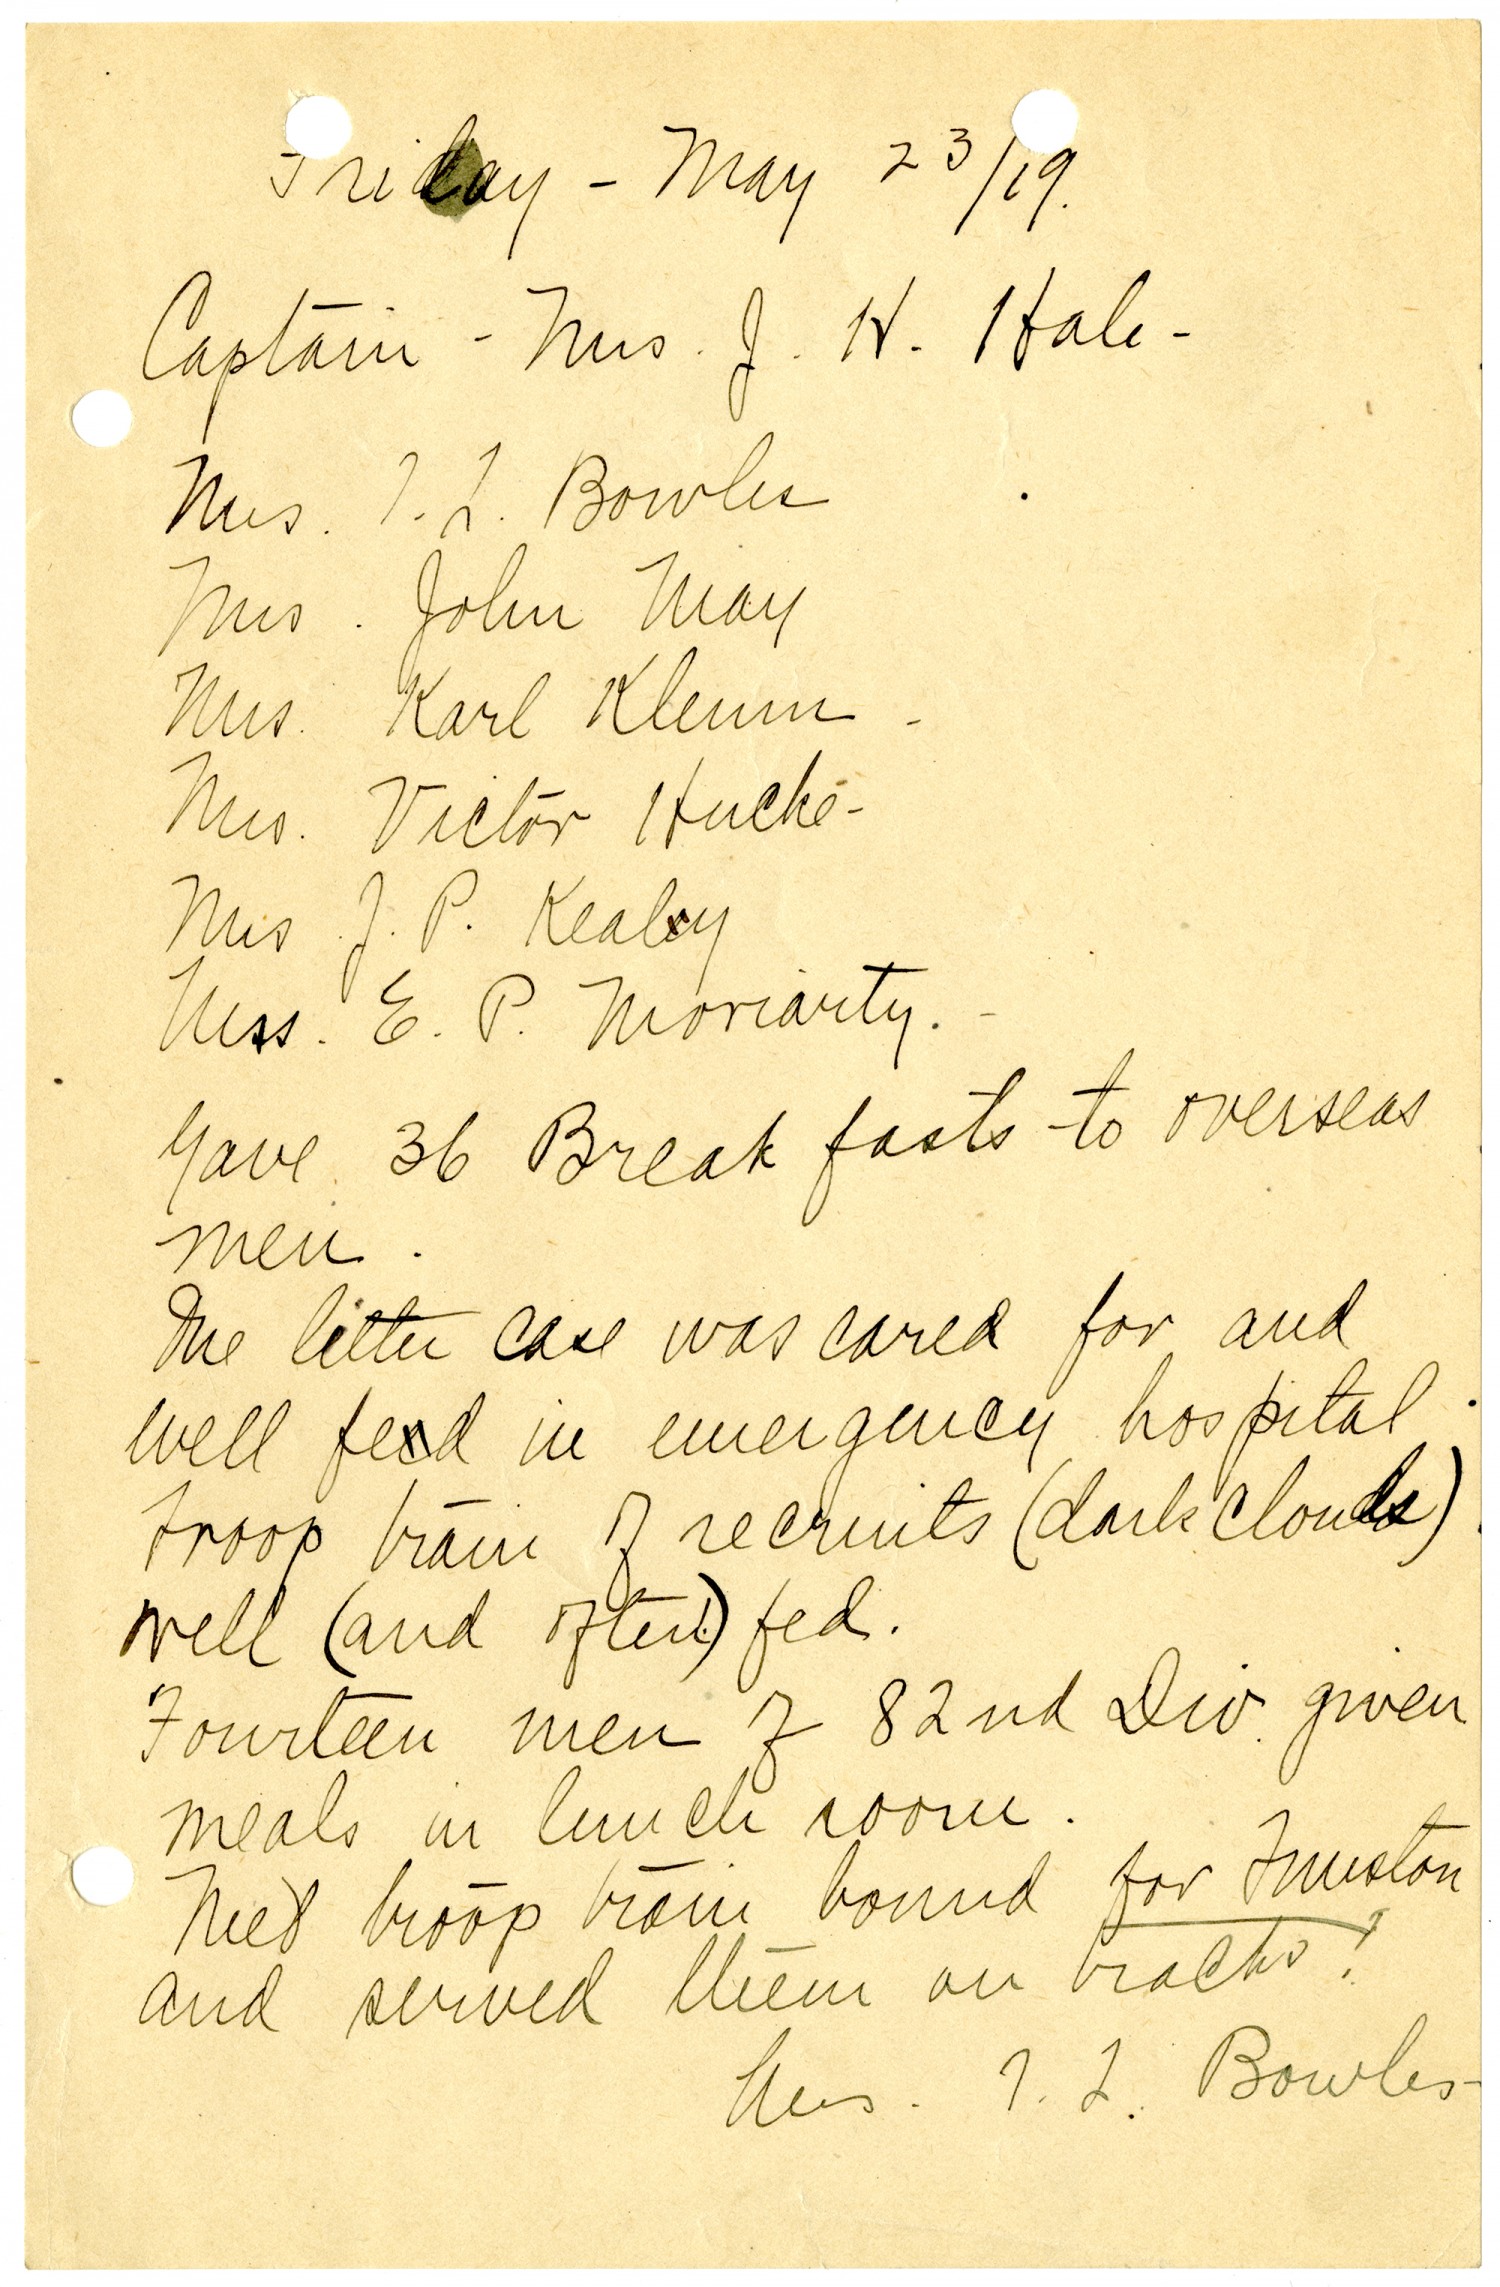 Friday - May 23/19.
Captain - Mrs. J. H. Hale -
Mrs. T. L. Bowles
Mrs. John May
Mrs. Karl Klemm -
Mrs. Victor Hucke -
Mrs J. P. Kealey
Miss. E. P. Moriarty. -
Gave 36 Break fasts to overseas
men.
One litter case was cared for and
well fed in emergency hospital.
Troop train of recruits (dark clouds)
well (and often!) fed.
Fourteen men of 82nd Div. given
meals in lunch room.
Met troop train bound for Funston
and served them on tracks!
Mrs. T. L. Bowles -